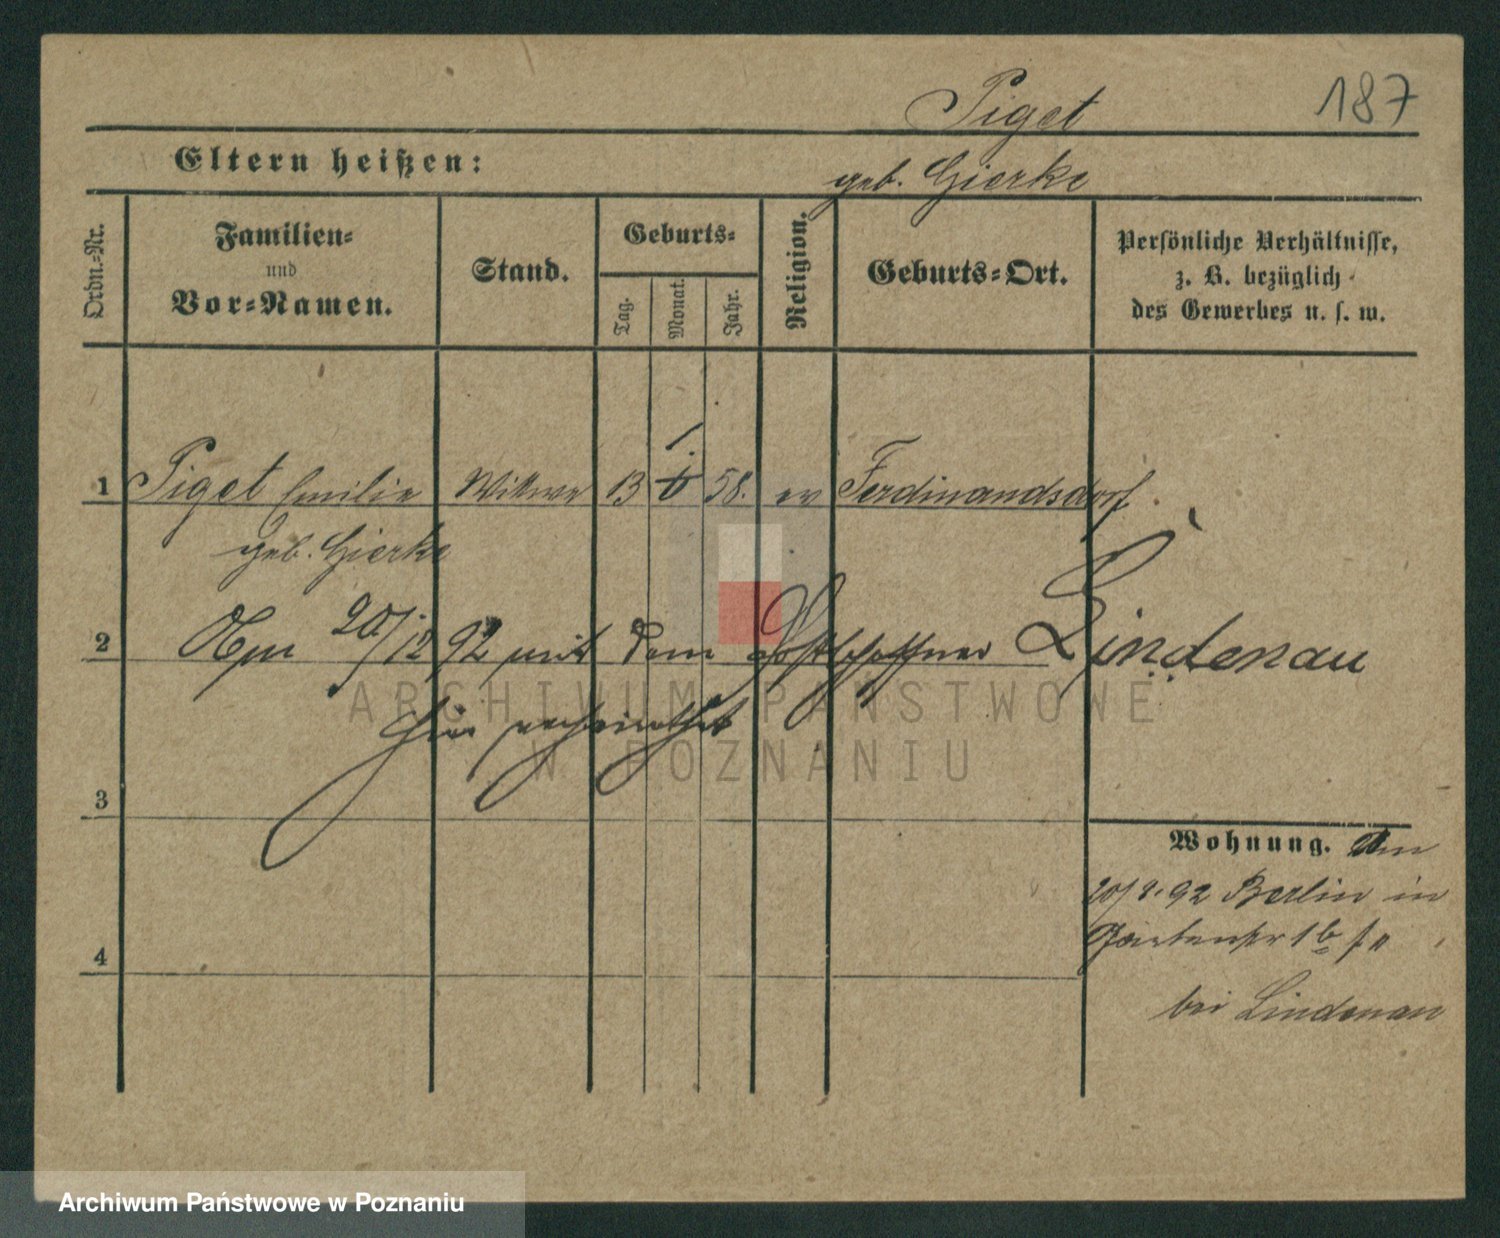 Piget
187
Eltern heißen:
geb. Gierke
Ordn.-Nr.
Familien-
und
Vor-Namen.
Stand.
Geburts-
Tag.
Monat.
Jahr.
Religion.
Geburts-Ort.
Persönliche Verhältnisse,
z. B. bezüglich
des Gewerbes u. s. w.
1 Piget Emilie Wittwe 13 1. 58. ev Ferdinandsdorf.
geb. Gierke
2 20/12 92 mit dem Postschaffner Lindenau
hier verheirathet
3
Wohnung. Am
20/9.92 Berlin in
Gartenstr 1b
4
bei Lindenau
ARCHIWUM PAŃSTWOWE
W POZNANIU
Archiwum Państwowe w Poznaniu